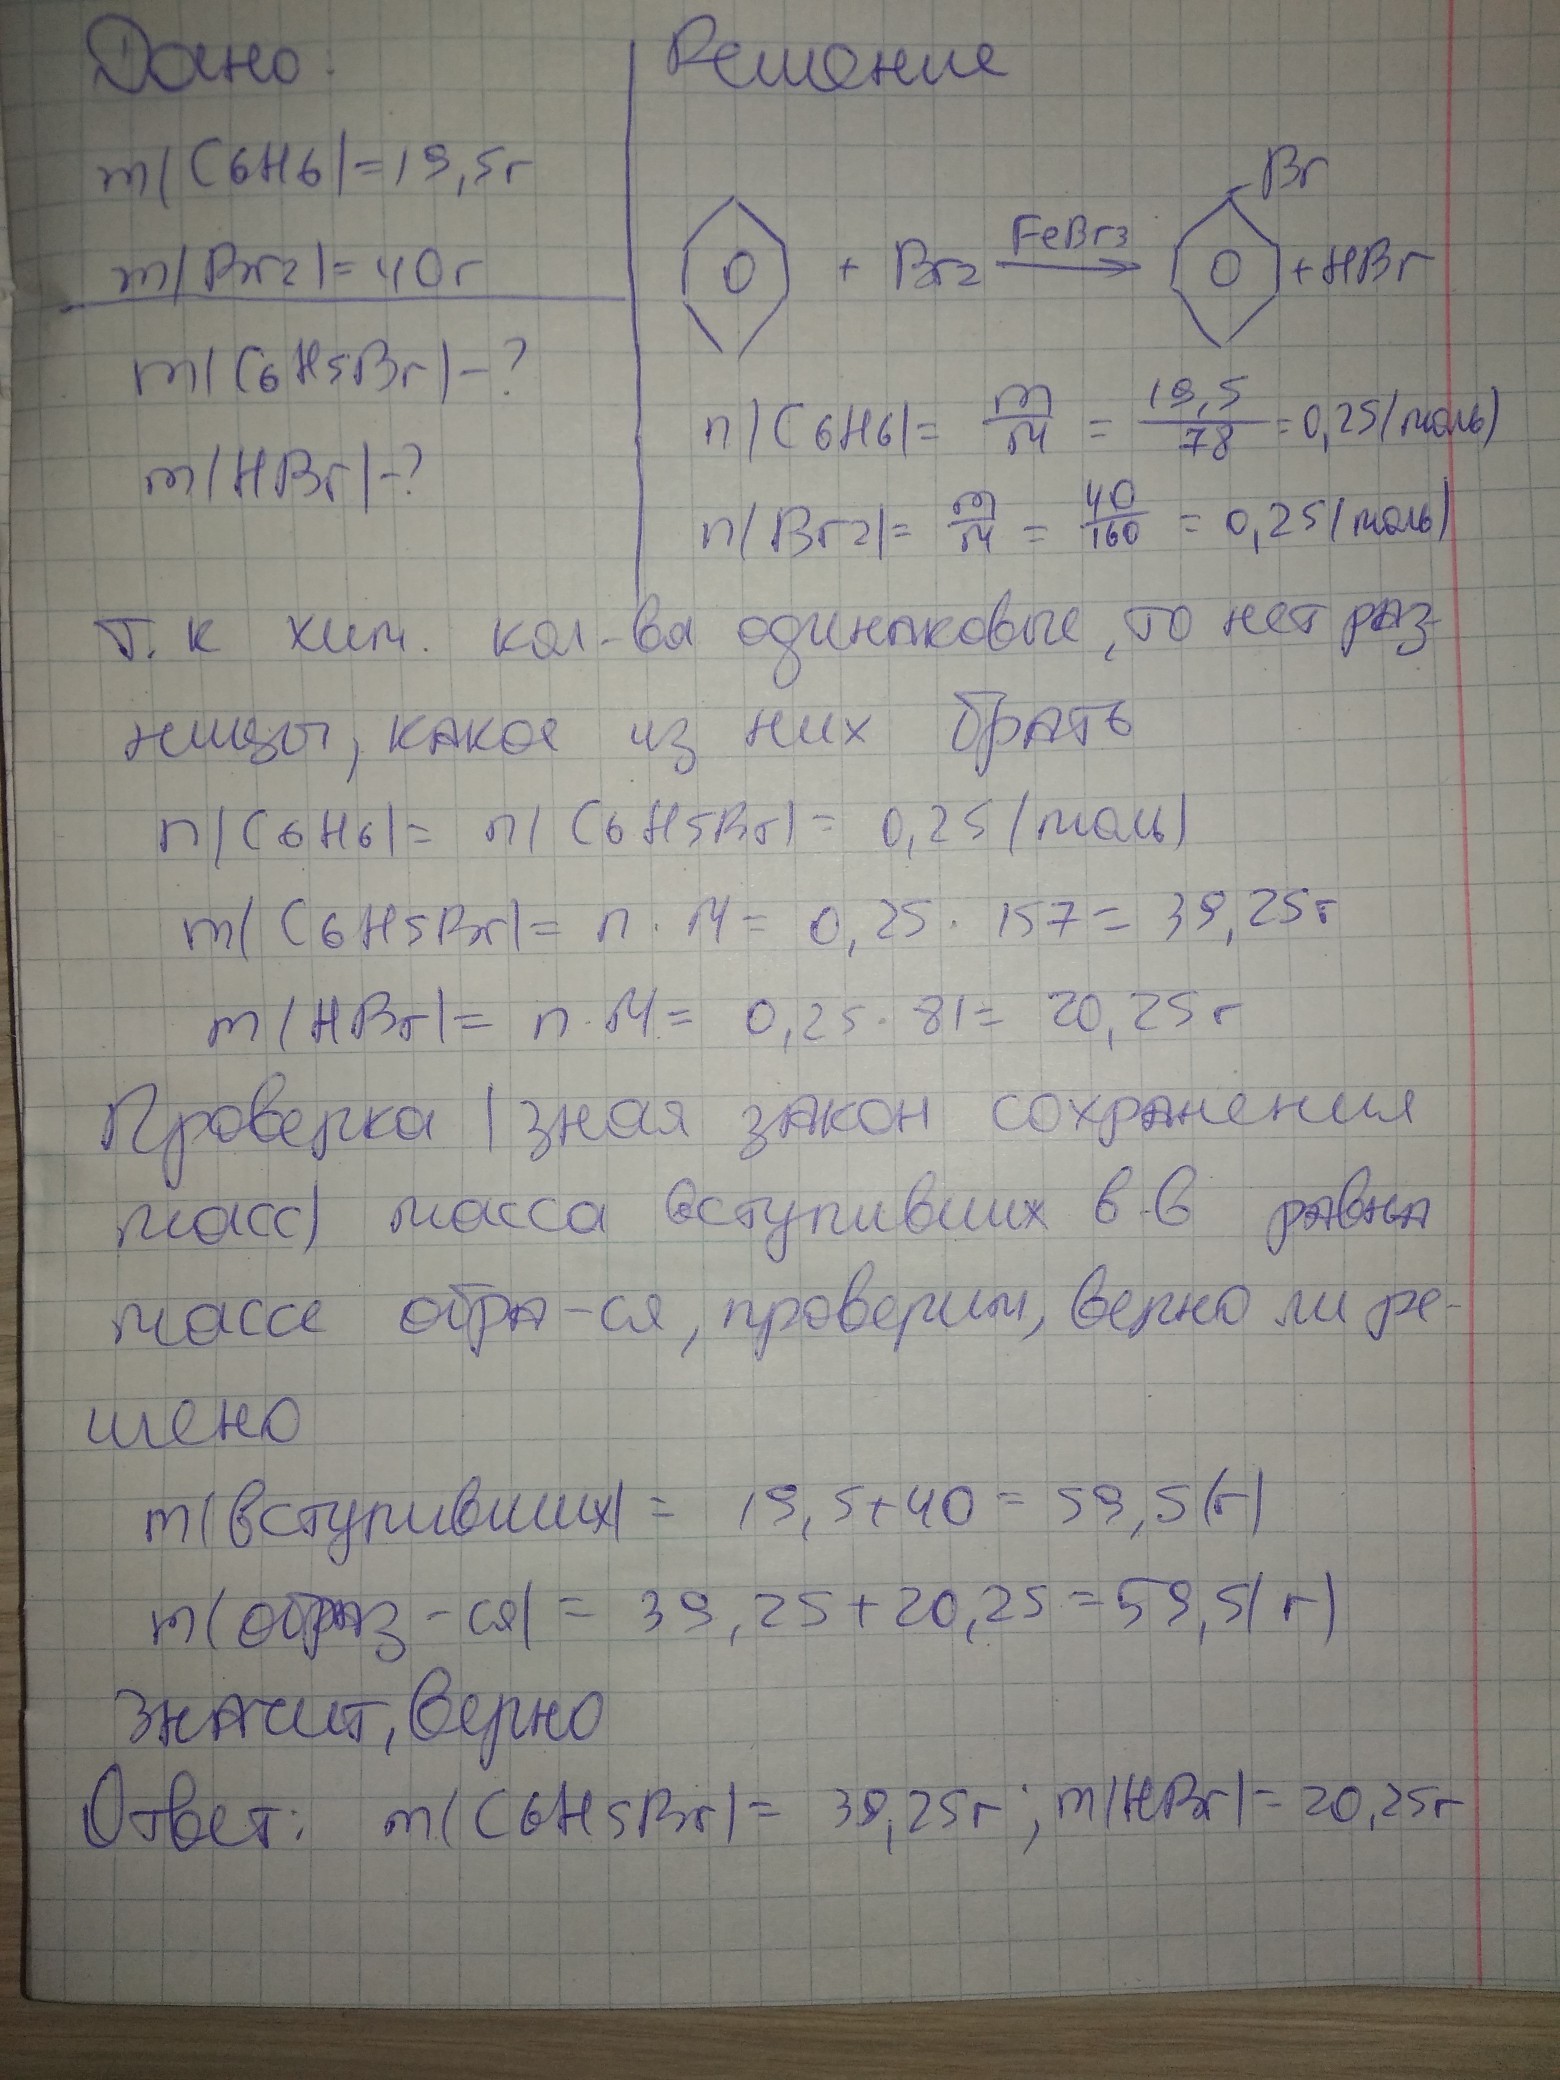 Дано:
Решение
m(C6H6)=19,5г
m(Br2)=40г
m(C6H5Br)-?
m(HBr)-?
Br
+ Br2 FeBr3 + HBr
n(C6H6)= m/M = 19,5/78 =0,25(моль)
n(Br2)= m/M = 40/160 = 0,25(моль)
Т.к хим. кол-ва одинаковые, то нет раз-
ницы, какое из них брать
n(C6H6)= n(C6H5Br)= 0,25(моль)
m(C6H5Br)= n·M= 0,25·157= 39,25г
m(HBr)= n·M= 0,25·81= 20,25г
Проверка (зная закон сохранения
масс) масса вступивших в-в равна
массе обра-ся, проверим, верно ли ре-
шено
m(вступивших)= 19,5+40= 59,5(г)
m(образ-ся)= 39,25+20,25=59,5(г)
значит, верно
Ответ: m(C6H5Br)= 39,25г; m(HBr)=20,25г